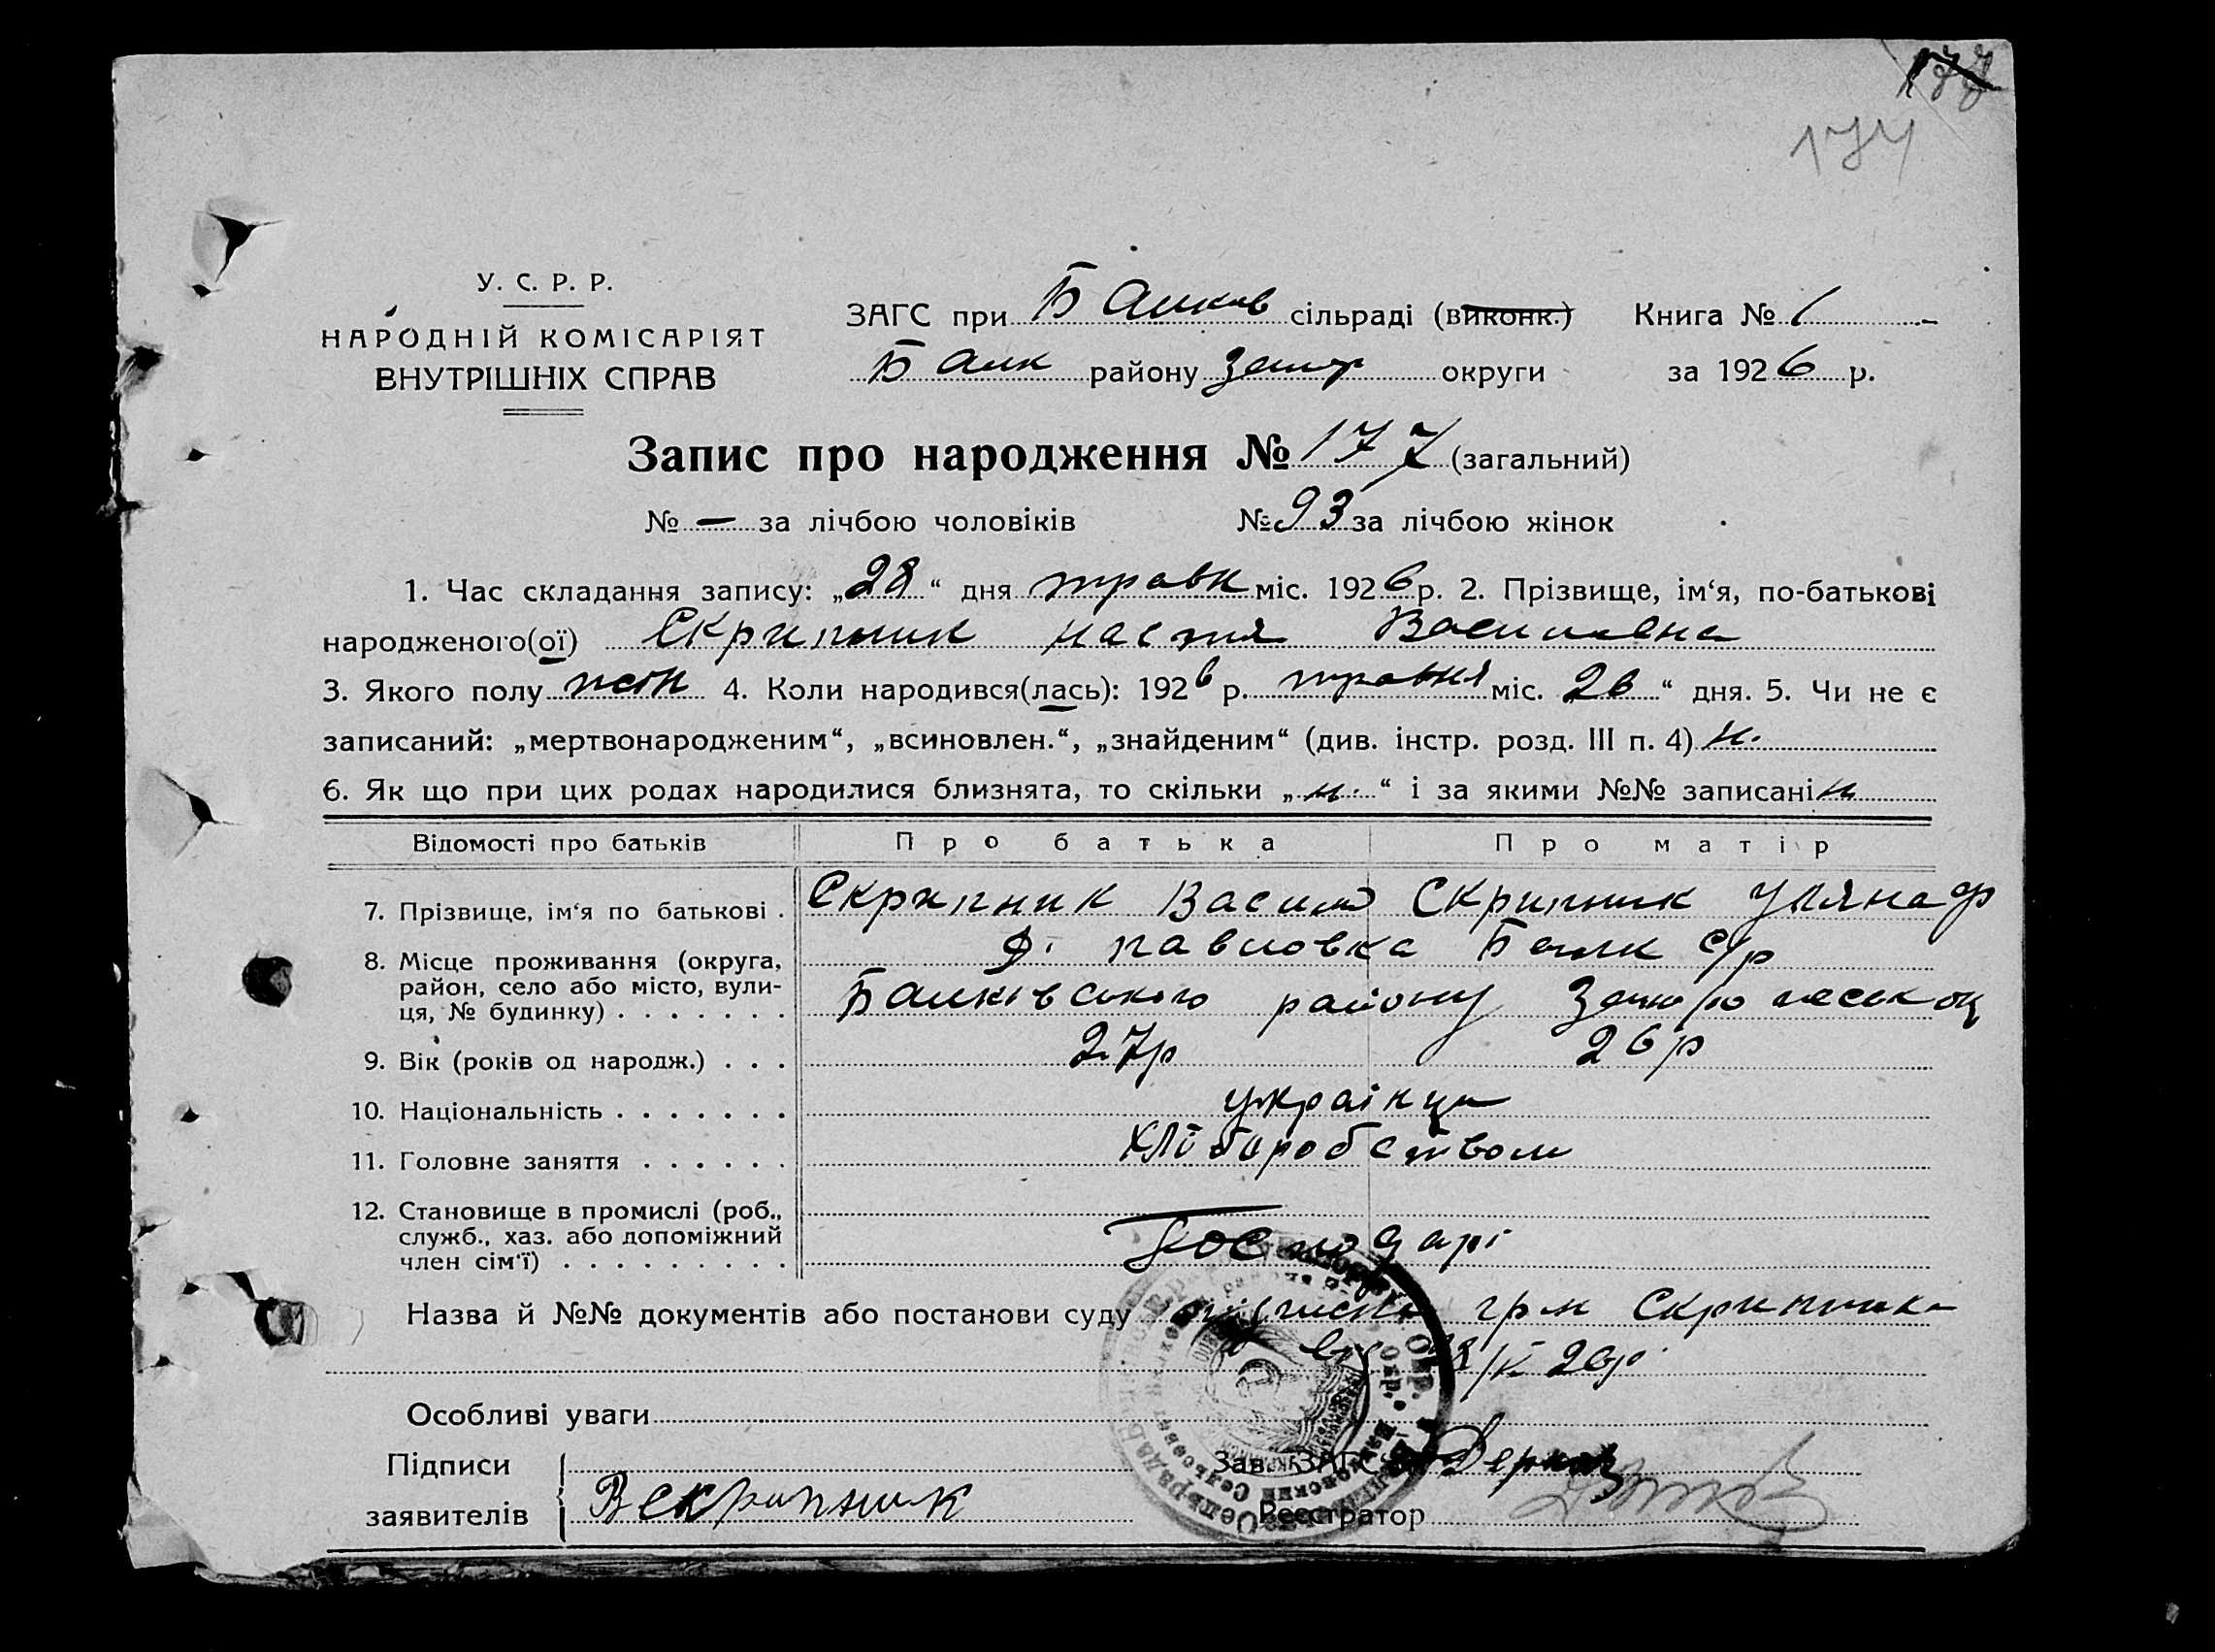 177
174
У. С. Р. Р.
НАРОДНІЙ КОМІСАРІЯТ
ВНУТРІШНІХ СПРАВ
ЗАГС при Балков сільраді (виконк.) Книга № 1
Балк району Запор округи за 1926 р.
Запис про народження № 177 (загальний)
№ — за лічбою чоловіків № 93 за лічбою жінок
1. Час складання запису: „28“ дня травн міс. 1926 р. 2. Прізвище, ім‘я, по-батькові
народженого(ої) Скрипник Настя Василивна
3. Якого полу жін 4. Коли народився(лась): 1926 р. травня міс. 26“ дня. 5. Чи не є
записаний: „мертвонародженим“, „всиновлен.“, „знайденим“ (див. інстр. розд. III п. 4) н.
6. Як що при цих родах народилися близнята, то скільки „н.“ і за якими №№ записані н
Відомості про батьків Про батька Про матір
7. Прізвище, ім‘я по батькові . Скрипник Васил Скрипник Уляна Ф
8. Місце проживання (округа, район, село або місто, вулиця, № будинку) . . . . . . . Павловка Балк с/р
Балківського району
9. Вік (років од народж.) . . . 27р 26р
10. Національність . . . . . . . українци
11. Головне заняття . . . . . . хліборобством
12. Становище в промислі (роб., служб., хаз. або допоміжний член сім‘ї) . . . . . . . . . Господарі
Назва й №№ документів або постанови суду гр-н Скрипника
28/V 26р
Особливі уваги
Підписи
заявителів В Скрипник
Зав. ЗАГС‘ом
Реєстратор